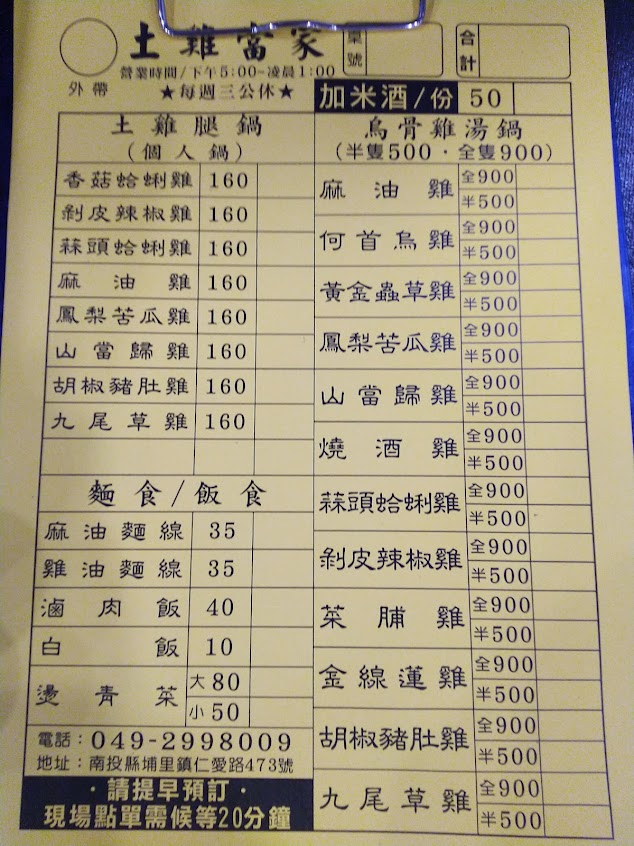 土雞當家
桌號
合計
營業時間/下午5:00~凌晨1:00
外帶
★每週三公休★
加米酒/份 50
土雞腿鍋
(個人鍋)
香菇蛤蜊雞 160
剝皮辣椒雞 160
蒜頭蛤蜊雞 160
麻油雞 160
鳳梨苦瓜雞 160
山當歸雞 160
胡椒豬肚雞 160
九尾草雞 160
麵食/飯食
麻油麵線 35
雞油麵線 35
滷肉飯 40
白飯 10
燙青菜 大80
小50
電話:049-2998009
地址:南投縣埔里鎮仁愛路473號
·請提早預訂·
現場點單需候等20分鐘
烏骨雞湯鍋
(半隻500·全隻900)
麻油雞 全900
半500
何首烏雞 全900
半500
黃金蟲草雞 全900
半500
鳳梨苦瓜雞 全900
半500
山當歸雞 全900
半500
燒酒雞 全900
半500
蒜頭蛤蜊雞 全900
半500
剝皮辣椒雞 全900
半500
菜脯雞 全900
半500
金線蓮雞 全900
半500
胡椒豬肚雞 全900
半500
九尾草雞 全900
半500